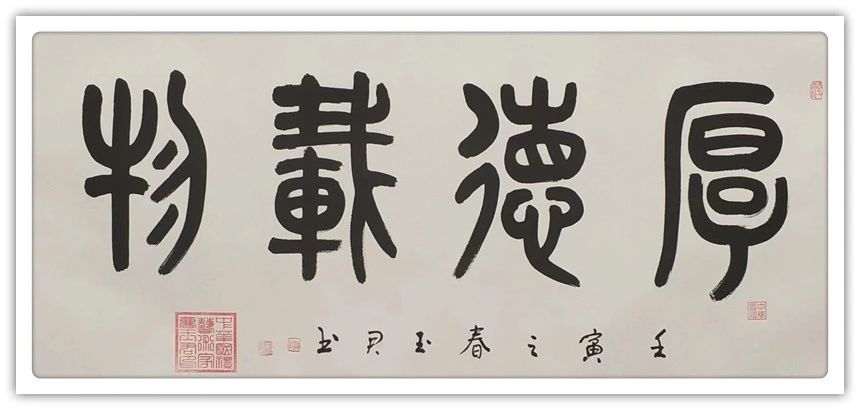 厚德載物
壬寅之春玉君书